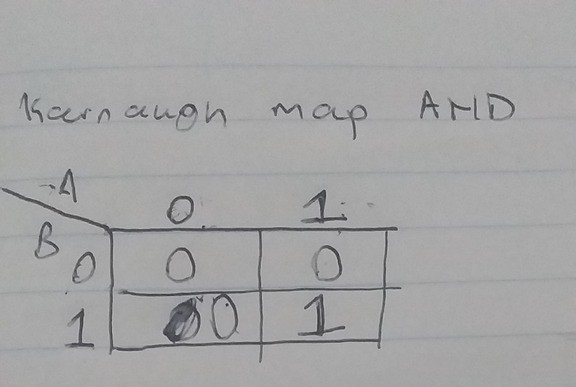 Karnaugh map AND
A
0 1
B
0 0 0
1 0 1